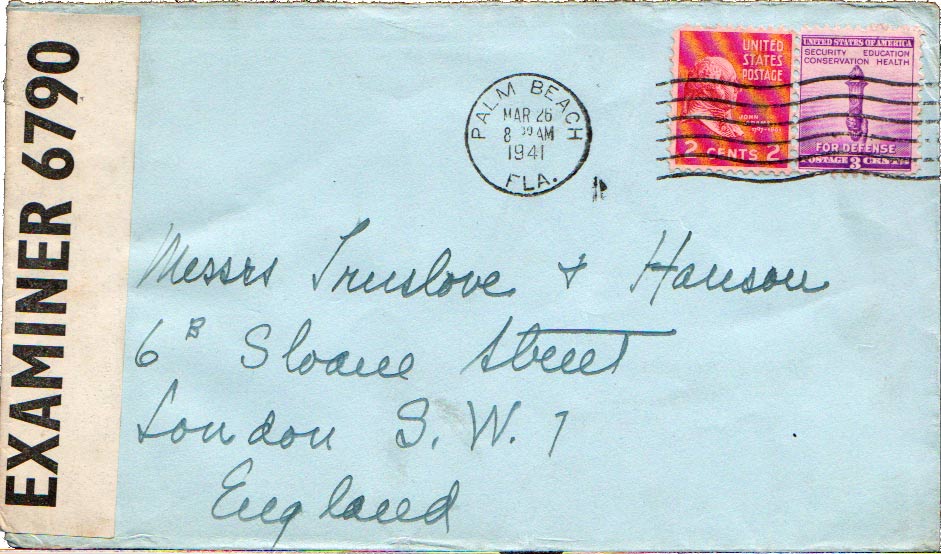 EXAMINER 6790
PALM BEACH
MAR 26
8 30 AM
1941
FLA.
UNITED
STATES
POSTAGE
JOHN
2 CENTS 2
UNITED STATES OF AMERICA
SECURITY EDUCATION
CONSERVATION HEALTH
FOR DEFENSE
POSTAGE 3 CENTS
Messrs Truslove & Hanson
6B Sloane Street
London S. W. 1
England